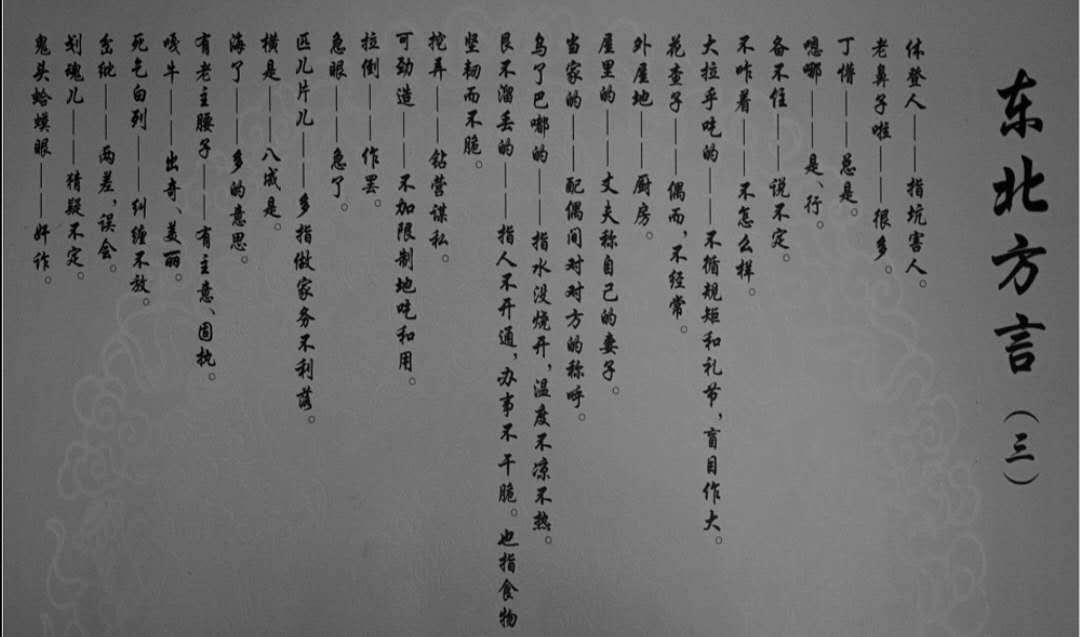 东北方言（三）
休登人——指坑害人。
老鼻子啦——很多。
丁憎——总是。
嗯哪——是、行。
备不住——说不定。
不咋着——不怎么样。
大拉乎吃的——不循规矩和礼节，盲目作大。
花查子——偶而，不经常。
外屋地——厨房。
屋里的——丈夫称自己的妻子。
当家的——配偶间对对方的称呼。
乌了巴嘟的——指水没烧开，温度不凉不热。
艮不溜丢的——指人不开通，办事不干脆。也指食物
坚韧而不脆。
挖弄——钻营谋私。
可劲造——不加限制地吃和用。
拉倒——作罢。
急眼——急了。
匹儿片儿——多指做家务不利落。
横是——八成是。
海了——多的意思。
有老主腰子——有主意、固执。
嘎牛——出奇、美丽。
死乞白列——纠缠不放。
岔纰——两差，误会。
划魂儿——猜疑不定。
鬼头蛤蟆眼——奸诈。